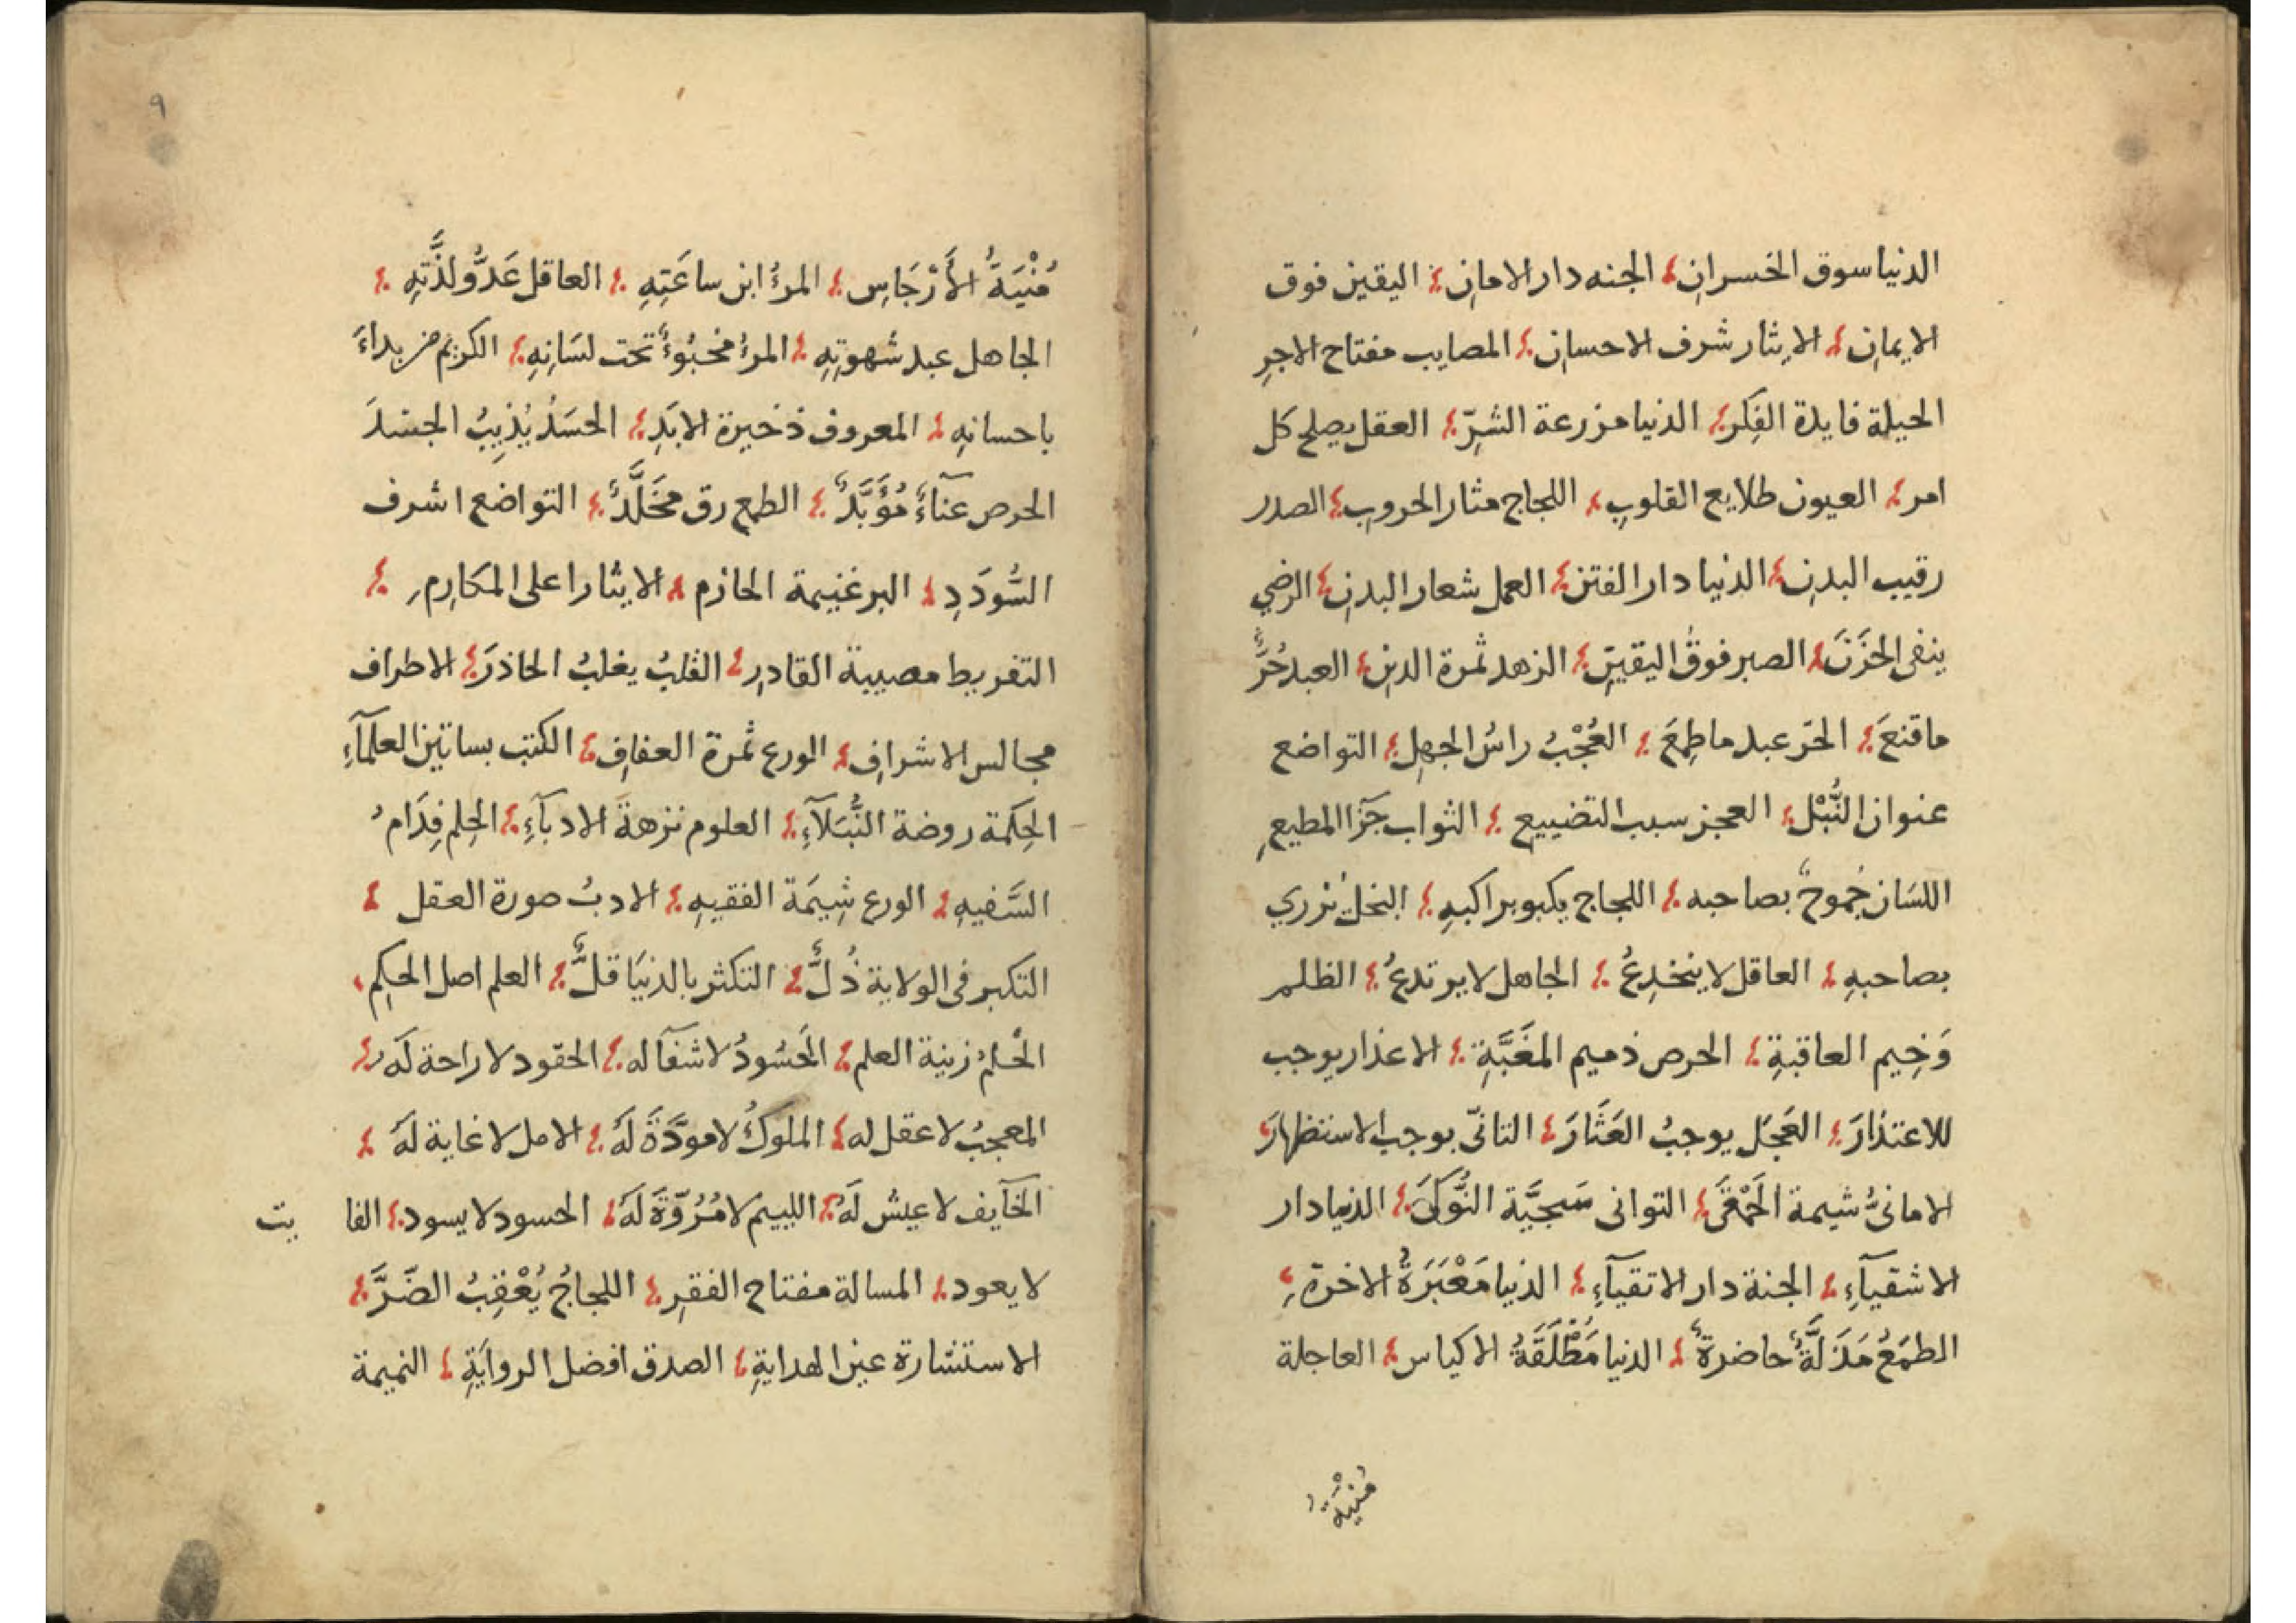 الدنيا سوق الخسران الجنه دار الامان اليقين فوق
الايمان الايثار شرف الاحسان المصايب مفتاح الاجرِ
الحيلة فايدة الفِكر الدنيا مزرعة الشرِّ العقل يصلح كل
امر العيون طلايع القلوبِ اللجاج مثار الحروبِ الصدر
رقيب البدنِ الدنيا دار الفتن العمل شعار البدنِ الرضي
ينفى الحَزَنَ الصبر فوق اليقينِ الزهد ثمرة الدينِ العبد حُرٌّ
ما قنعَ الحّر عبد ما طمِعَ العُجْبُ راسُ الجهلِ التواضع
عنوان النُّبْل العجز سبب التضييع الثواب جَزآ المطيعِ
اللسَان جُموحٌ بصاحبه اللجاج يكبو براكبهِ البخلُ يزري
بصاحبهِ العاقل لا ينخدِعُ الجاهل لا يرتدعُ الظلم
وَخِيم العاقبةِ الحرص ذميم المغَبَّةِ الاعذار يوجب
للاعتذارَ العَجَل يوجبُ العَثَارَ التانّى يوجب الاستظهارَ
الامانىُّ شيمة الحَمْقَى التوانى سَجيَّة النُّوكَىَ الدنيا دار
الاشقيآءِ الجنة دار الاتقيآءِ الدنيا مَعْبَرَةُ الاخرةِ
الطمَعُ مَذَلَّةٌ حاضرةٌ الدنيا مُطَلَّقَةُ الاكياس العاجلة
مُنْيَةُ
٩
مُنْيَةُ الأَرْجَاسِ المرءُ ابن ساعَتِهِ العاقل عَدُّو لذَّتِهِ
الجاهل عبد شهوتِهِ المرءُ مخبُوءٌ تحت لسَانِهِ الكريم من بداءَ
باحسانِهِ المعروف ذخيرة الابَدِ الحسَدُ يُذيِبُ الجسَدَ
الحرص عنآءٌ مُؤَبَّدٌ الطمع رق مخَلَّدٌ التواضع اشرف
السُّودَدِ البر غنيمة الحازم الايثار اعلى المكارِمِ
التفريط مصيبة القادِرِ القلبُ يغلبُ الحاذرَ الاطراف
مجالس الاشرافِ الورع ثمرة العفافِ الكتب بساتين العلمآءِ
الحِكمة روضة النُّبَلآءِ العلوم نزهةَ الادبآءِ الحِلم فِدَامُ
السَّفيهِ الورع شِيمَة الفقيهِ الادبُ صورة العقل
التكبر فى الولاية ذُلٌّ التكثر بالدنيَا قلٌّ العلم اصل الحِكم
الحْلمُ زينة العلم الحَسُودُ لا شفآ له الحقود لا راحة لَه
المعجبُ لا عقل له الملوكُ لا مودَّةَ لَهُ الامل لا غاية لَهَ
الخآيف لا عيشَ لَهُ اللييم لا مُرُوَّةَ لَهَ الحسود لا يسود الفا يت
لا يعود المسالة مفتاح الفقرِ اللجاجُ يُعْقِبُ الضّرَّ
الاستشارة عين الهدايةِ الصدق افضل الروايَةِ النميمة